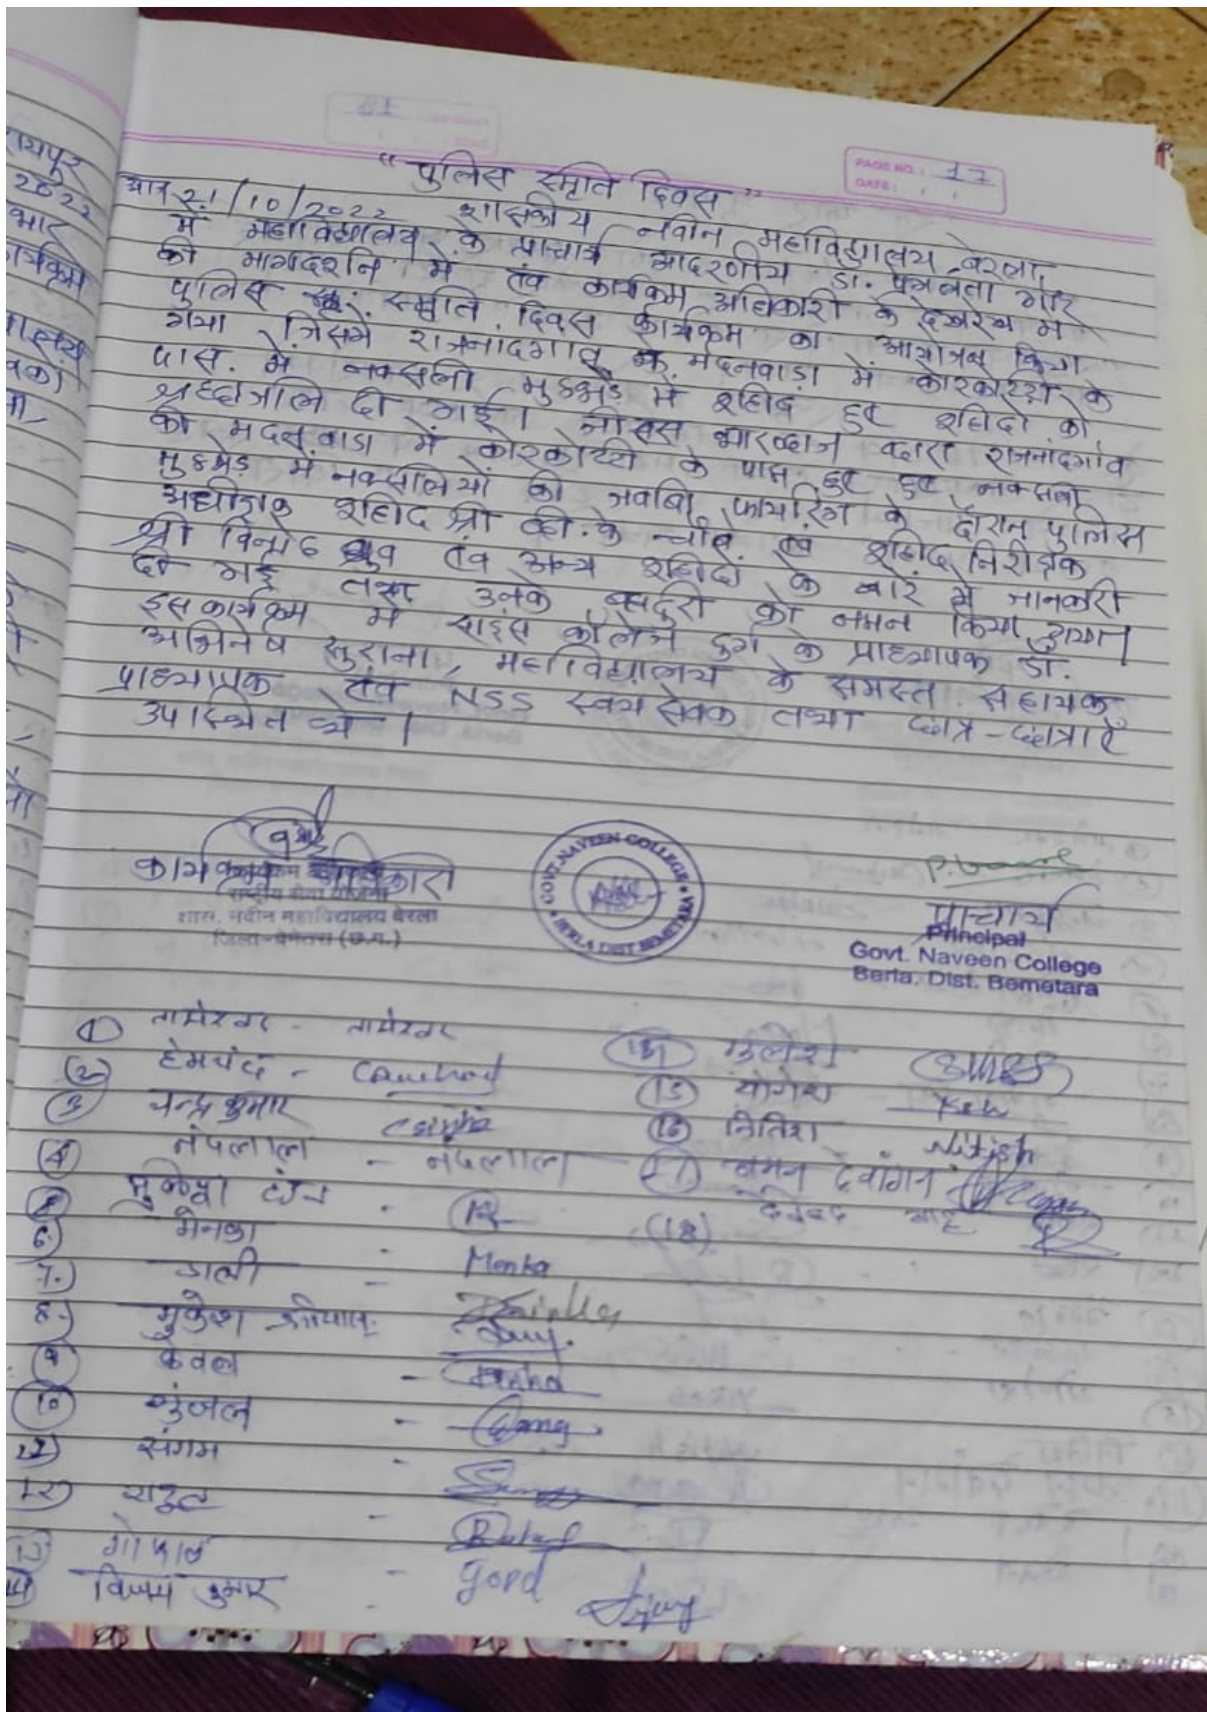 PAGE NO.: 17
DATE:
"पुलिस स्मृति दिवस"
आज 21/10/2022 शासकीय नवीन महाविद्यालय बेरला,
में महाविद्यालय के प्राचार्य आदरणीय डा. प्रेमलता गौर
की मार्गदर्शन में एंव कार्यक्रम अधिकारी के देखरेख में
पुलिस स्मृति दिवस कार्यक्रम का आयोजन किया
गया जिसमें राजनादगांव के मदनवाड़ा में कोरकोट्टी के
पास में नक्सली मुठभेड़ में शहीद हुए शहीदों को
श्रद्धांजलि दी गई। भारव्दाज व्दारा राजनांदगांव
की मदनवाडा में कोरकोट्टी के पास हुए हुए नक्सली
मुठभेड़ में नक्सलियों की जवाबी फायरिंग के दौरान पुलिस
अधीक्षक शहीद श्री व्ही.के चौबे एंव शहीद निरीक्षक
श्री विनोद ध्रुव एंव अन्य शहीदों के बारे में जानकारी
दी गई तथा उनके बहादुरी को नमन किया गया।
इस कार्यक्रम में साइंस कॉलेज दुर्ग के प्राध्यापक डॉ.
अभिनेष सुराना, महाविद्यालय के समस्त सहायक
प्राध्यापक एंव NSS स्वयं सेवक तथा छात्र-छात्राएँ
उपस्थित थे।
कार्यक्रम अधिकारी
राष्ट्रीय सेवा योजना
शास. नवीन महाविद्यालय बेरला
जिला-बेमेतरा (छ.ग.)
GOVT. NAVEEN COLLEGE
BERLA DIST BEMETARA
प्राचार्य
Principal
Govt. Naveen College
Berla, Dist. Bemetara
① तामेश्वर - तामेश्वर
② हेमचंद -
③ चन्द्र कुमार
④ नंदलाल - नंदलाल
⑤
6.) मेनका - Menka
7.) डाली -
8.) मुकेश
⑨ केवल -
⑩ -
11) संगम -
12) राहुल -
13) गोपाल - Gopal
14) विजय कुमार -
योगेश
⑯ नितिश Nitish
⑰ नमन देवांगन
(18)